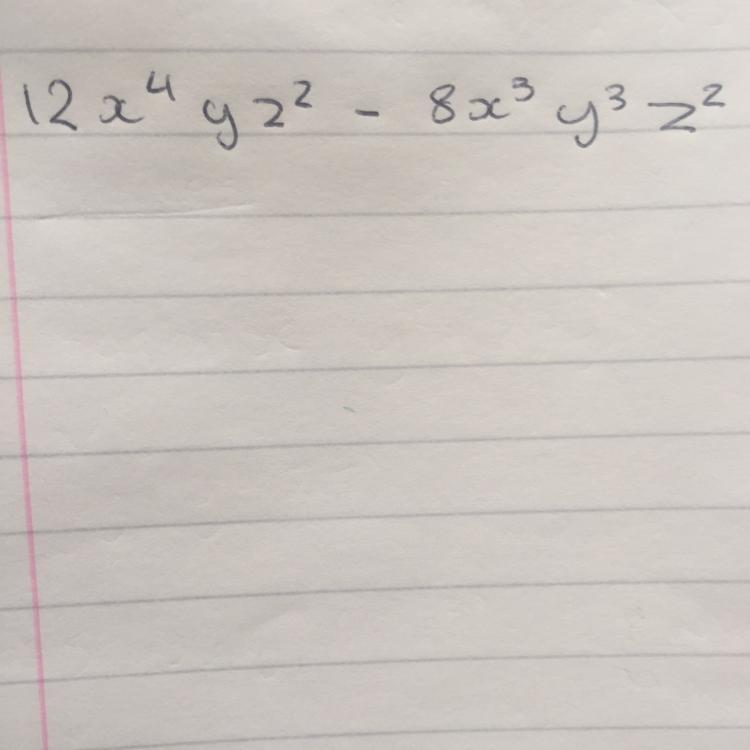 12x⁴yz² - 8x³y³z²